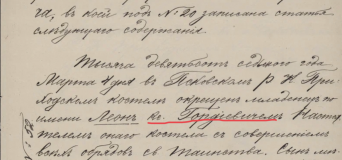 га, въ коей подъ N 20 записана статья
слѣдующаго содержанія
Тысяча девятьсотъ седьмого года
Марта 4 дня въ Псковскомъ Р. К. При-
ходскомъ костелѣ окрещенъ младенецъ по
имени Леонъ Гордзевичемъ Настоя-
телемъ онаго костела съ совершеніемъ
всѣхъ обрядовъ Таинства. Сынъ